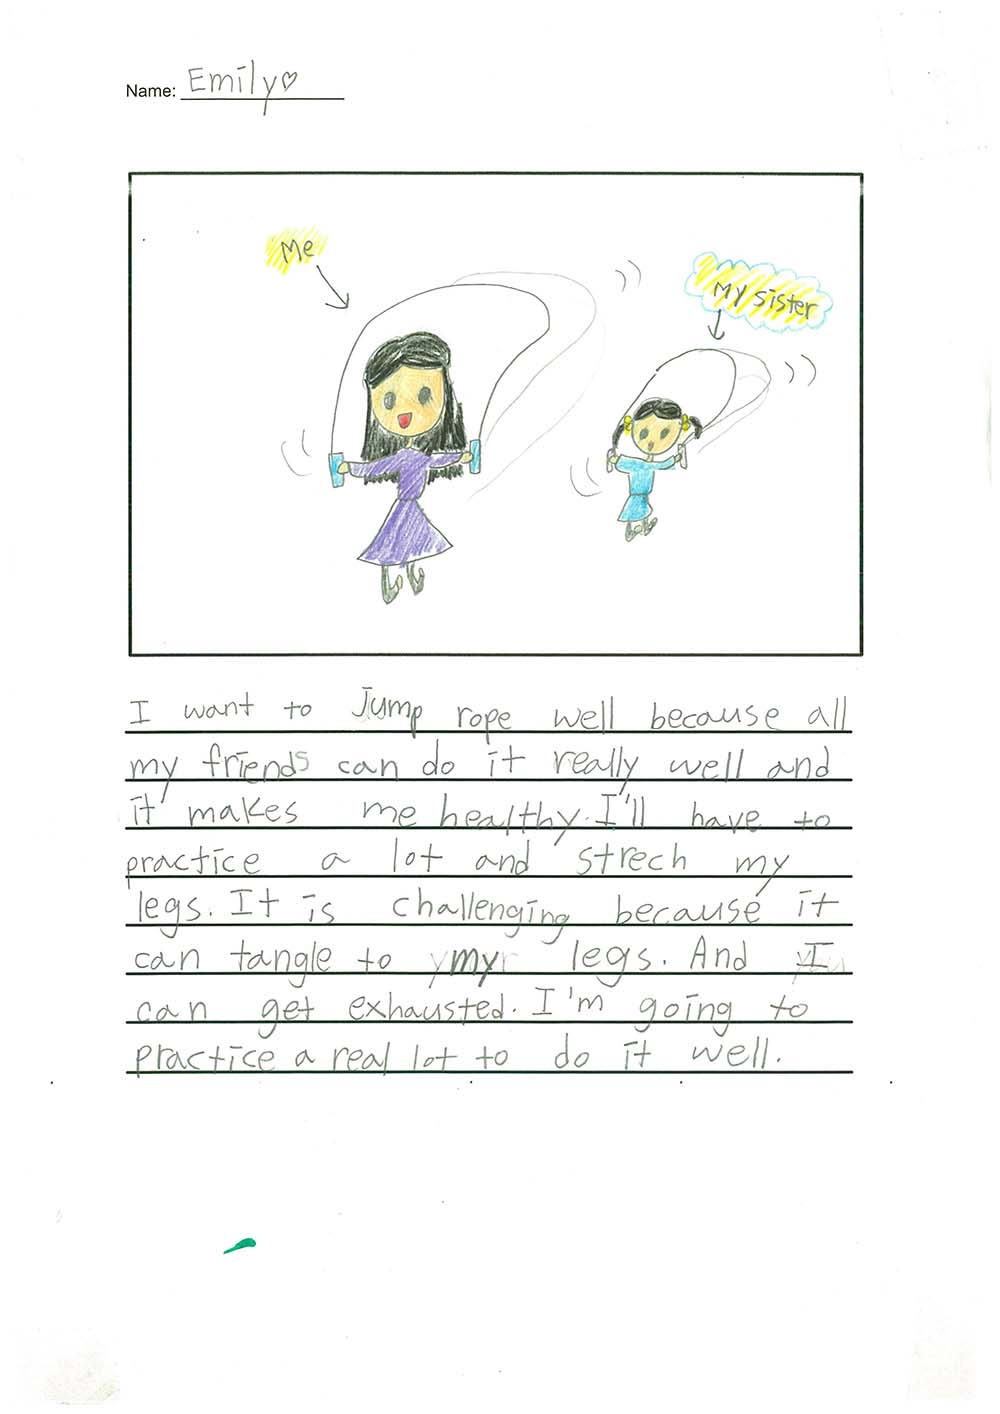 Name: Emily♡
Me
My sister
I want to Jump rope well because all
my friends can do it really well and
it makes me healthy. I'll have to
practice a lot and strech my
legs. It is challenging because it
can tangle to my legs. And I
can get exhausted. I'm going to
practice a real lot to do it well.